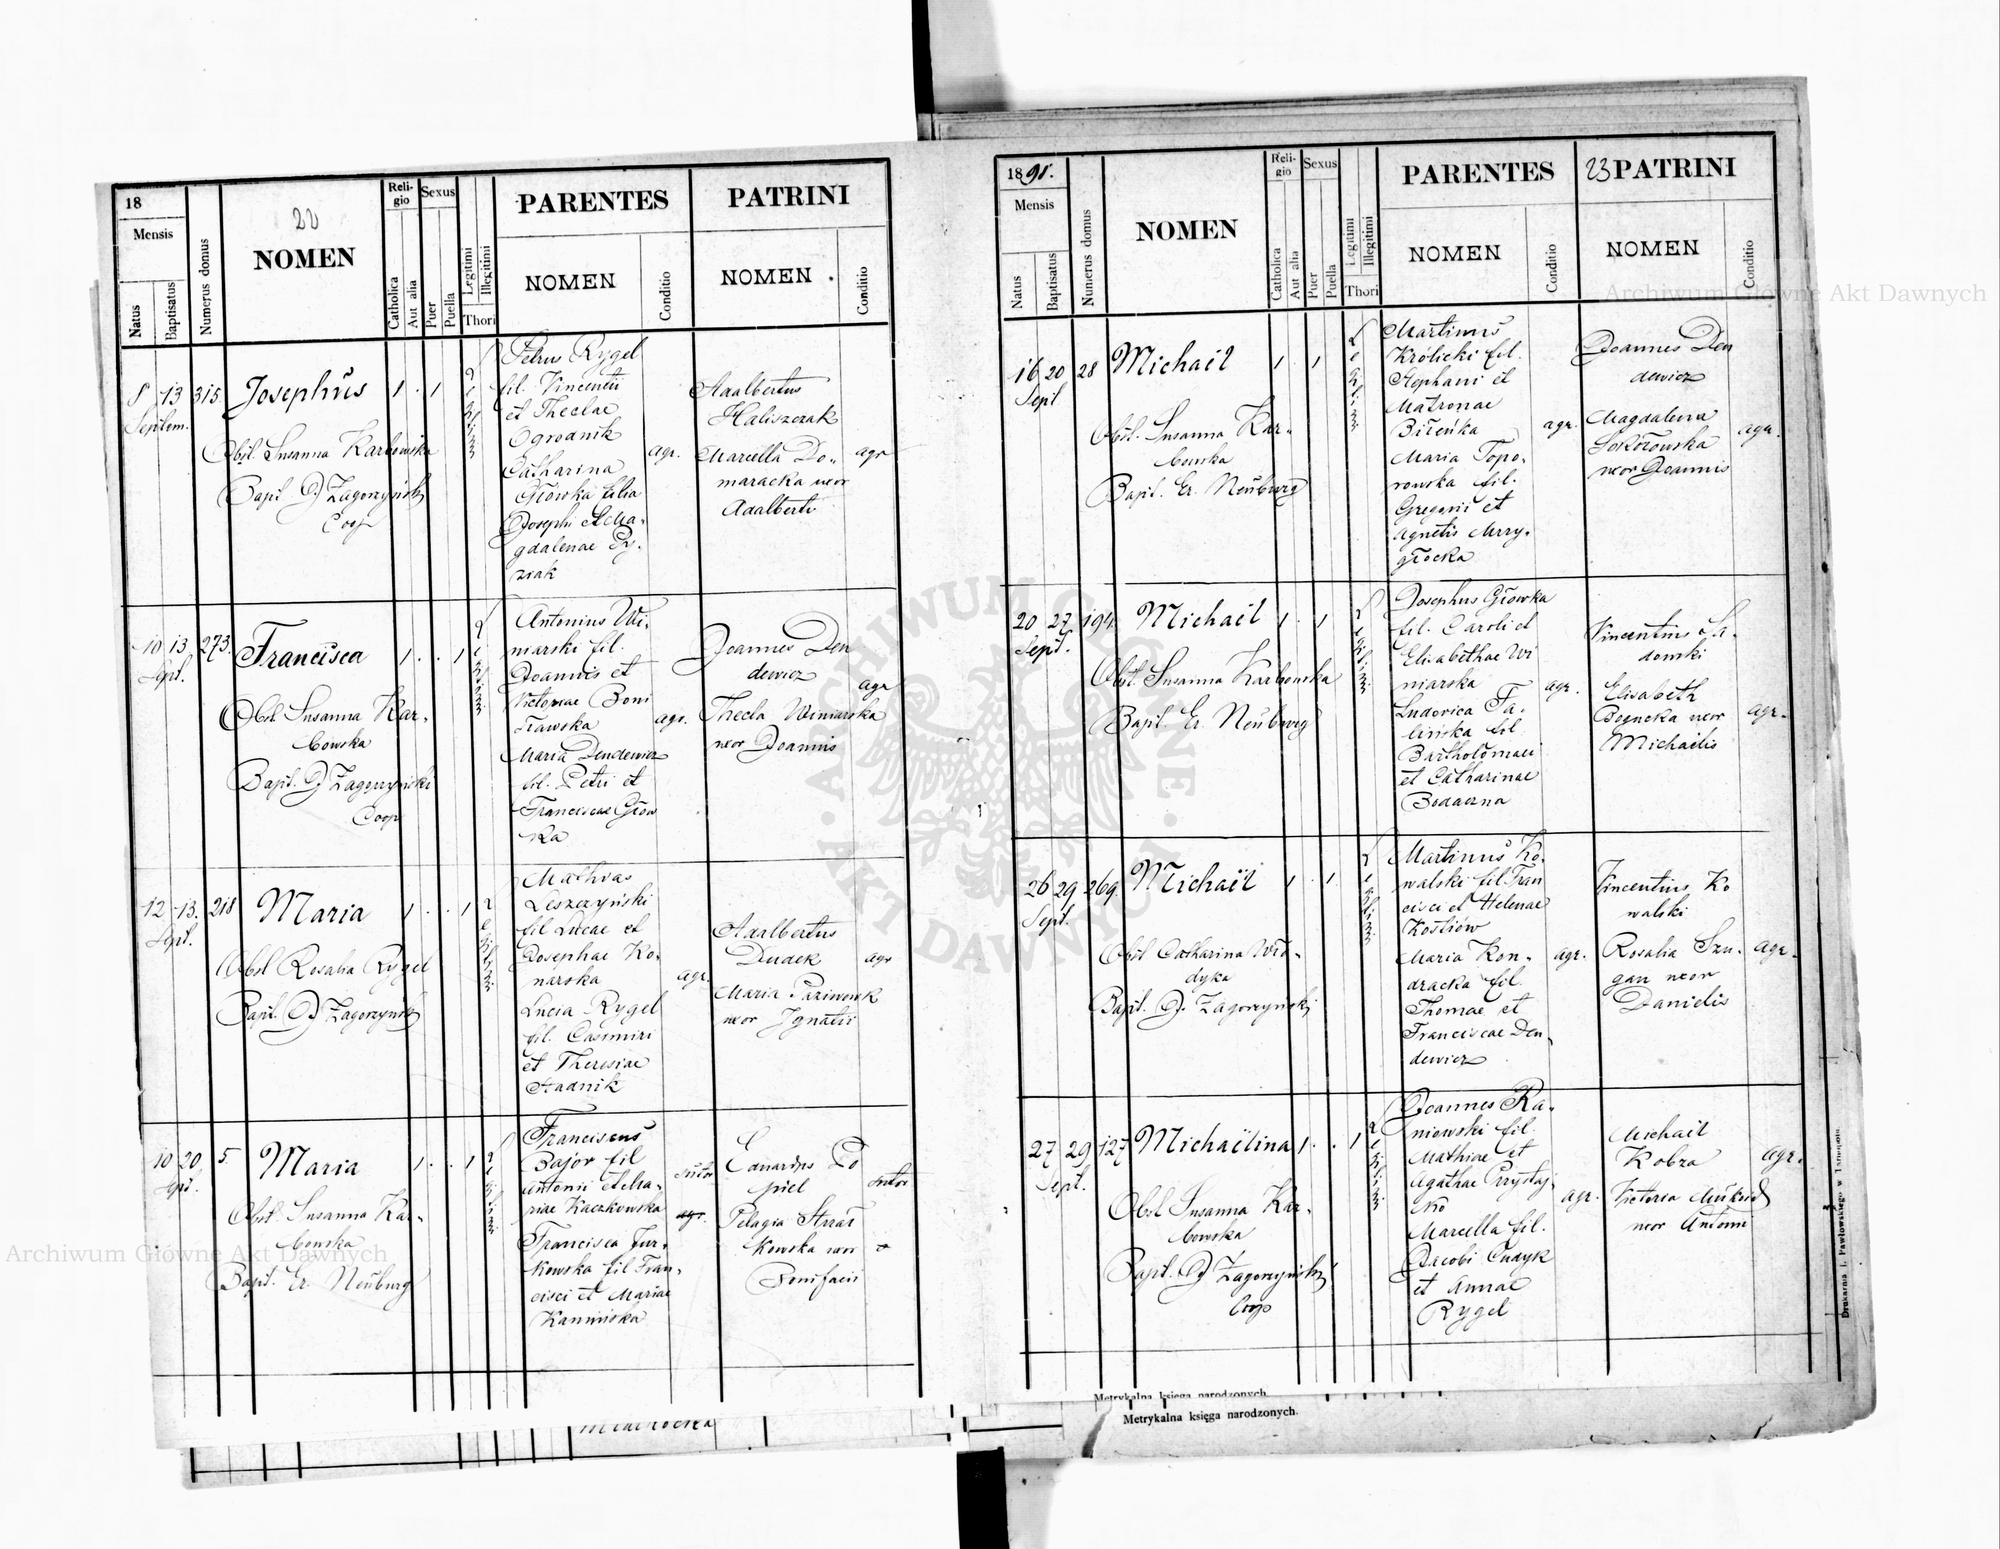 18
22
Mensis
Natus
Baptisatus
Numerus domus
NOMEN
Reli-
gio
Catholica
Aut alia
Sexus
Puer
Puella
Legitimi
Illegitimi
Thori
PARENTES
NOMEN
Conditio
PATRINI
NOMEN
Conditio
8 13 315 Josephus 1 . 1
Septem.
Obst. Susanna Karbowska
Bapt. J Zagorzyński
Coop
Petrus Rygel
fil. Vincentii
et Theclae
Ogrodnik
Catharina
Główka filia
Josephi et Ma-
gdalenae Py-
ziak
agr.
Adalbertus
Haliszczak
Marcella Do-
maracka uxor
Adalberti
agr
10 13 273. Francisca 1 . . 1
Sept.
Obst Susanna Kar-
bowska
Bapt. J Zagorzyński
Coop
Antonius Wi-
niarski fil.
Joannis et
Victoriae Boni
ławska
Maria Dendewicz
fil. Petri et
Franciscae Głow
ka
agr.
Joannes Den
dewicz
Thecla Winiarska
uxor Joannis
agr
12 13. 218 Maria 1 . . 1
Sept.
Obst Rosalia Rygel
Bapt. J Zagorzyński
Mathias
Leszczyński
fil Lucae et
Josephae Ko-
narska
Lucia Rygel
fil. Casimiri
et Theresiae
Stadnik
agr.
Adalbertus
Dudek
Maria Paziwowk
uxor Ignatii
agr
10 20 5. Maria 1 . . 1
Sept.
Obst. Susanna Kar-
bowska
Bapt. Er. Neuburg
Franciscus
Bajor fil
Antonii et Ma-
riae Kaczkowska
Francisca Jur-
kowska fil Fran-
cisci et Mariae
Kamińska
sutor
agr.
Eduardus Po
piel
Pelagia Strzał
kowska uxor
Bonifacii
sutor
1891.
23
Mensis
Natus
Baptisatus
Numerus domus
NOMEN
Reli-
gio
Catholica
Aut alia
Sexus
Puer
Puella
Legitimi
Illegitimi
Thori
PARENTES
NOMEN
Conditio
PATRINI
NOMEN
Conditio
16 20 28 Michaël 1 . 1
Sept
Obst. Susanna Kar-
bowska
Bapt. Er. Neuburg
Martinus
Królicki fil.
Stephani et
Matronae
Bileńka
Maria Topo-
rowska fil.
Gregorii et
Agnetis Mrzy-
głocka
agr.
Joannes Den
dewicz
Magdalena
Sokołowska
uxor Joannis
agr.
20 27 194. Michaël 1 . 1
Sept.
Obst. Susanna Karbowska
Bapt. Er. Neuburg
Josephus Główka
fil. Caroli et
Elisabethae Wi
niarska
Ludovica Fa-
lińska fil
Bartholomaei
et Catharinae
Bodaczna
agr.
Vincentius Sa-
domski
Elisabeth
uxor
Michaelis
agr.
26 29 269. Michaël 1 . 1
Sept.
Obst Catharina Wło-
dyka
Bapt. J. Zagorzyński
Martinus Ko-
walski fil Fran
cisci et Helenae
Kostiów
Maria Kon-
dracka fil.
Thomae et
Franciscae Den-
dewicz
agr.
Vincentius Ko
walski
Rosalia Szu-
gan uxor
Danielis
agr.
27 29 127 Michaëlina 1 . . 1
Sept.
Obst Susanna Kar-
bowska
Bapt. J Zagorzyński
Coop
Joannes Ra-
niewski fil.
Mathiae et
Agathae Przystaj-
ko
Marcella fil.
Jacobi Cudyk
et Annae
Rygel
agr.
Michaël
Kobza
Victoria
uxor Antonii
agr.
Metrykalna księga narodzonych.
Metrykalna księga narodzonych.
Drukarnia J. Pawłowskiego w Tarnopolu.
Archiwum Główne Akt Dawnych
Archiwum Główne Akt Dawnych
ARCHIWUM GŁÓWNE
AKT DAWNYCH